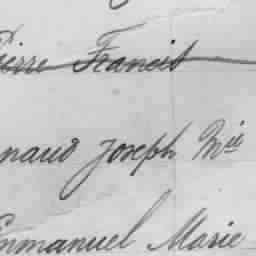 Pierre Francis
naud Joseph Mie
Emmanuel Marie